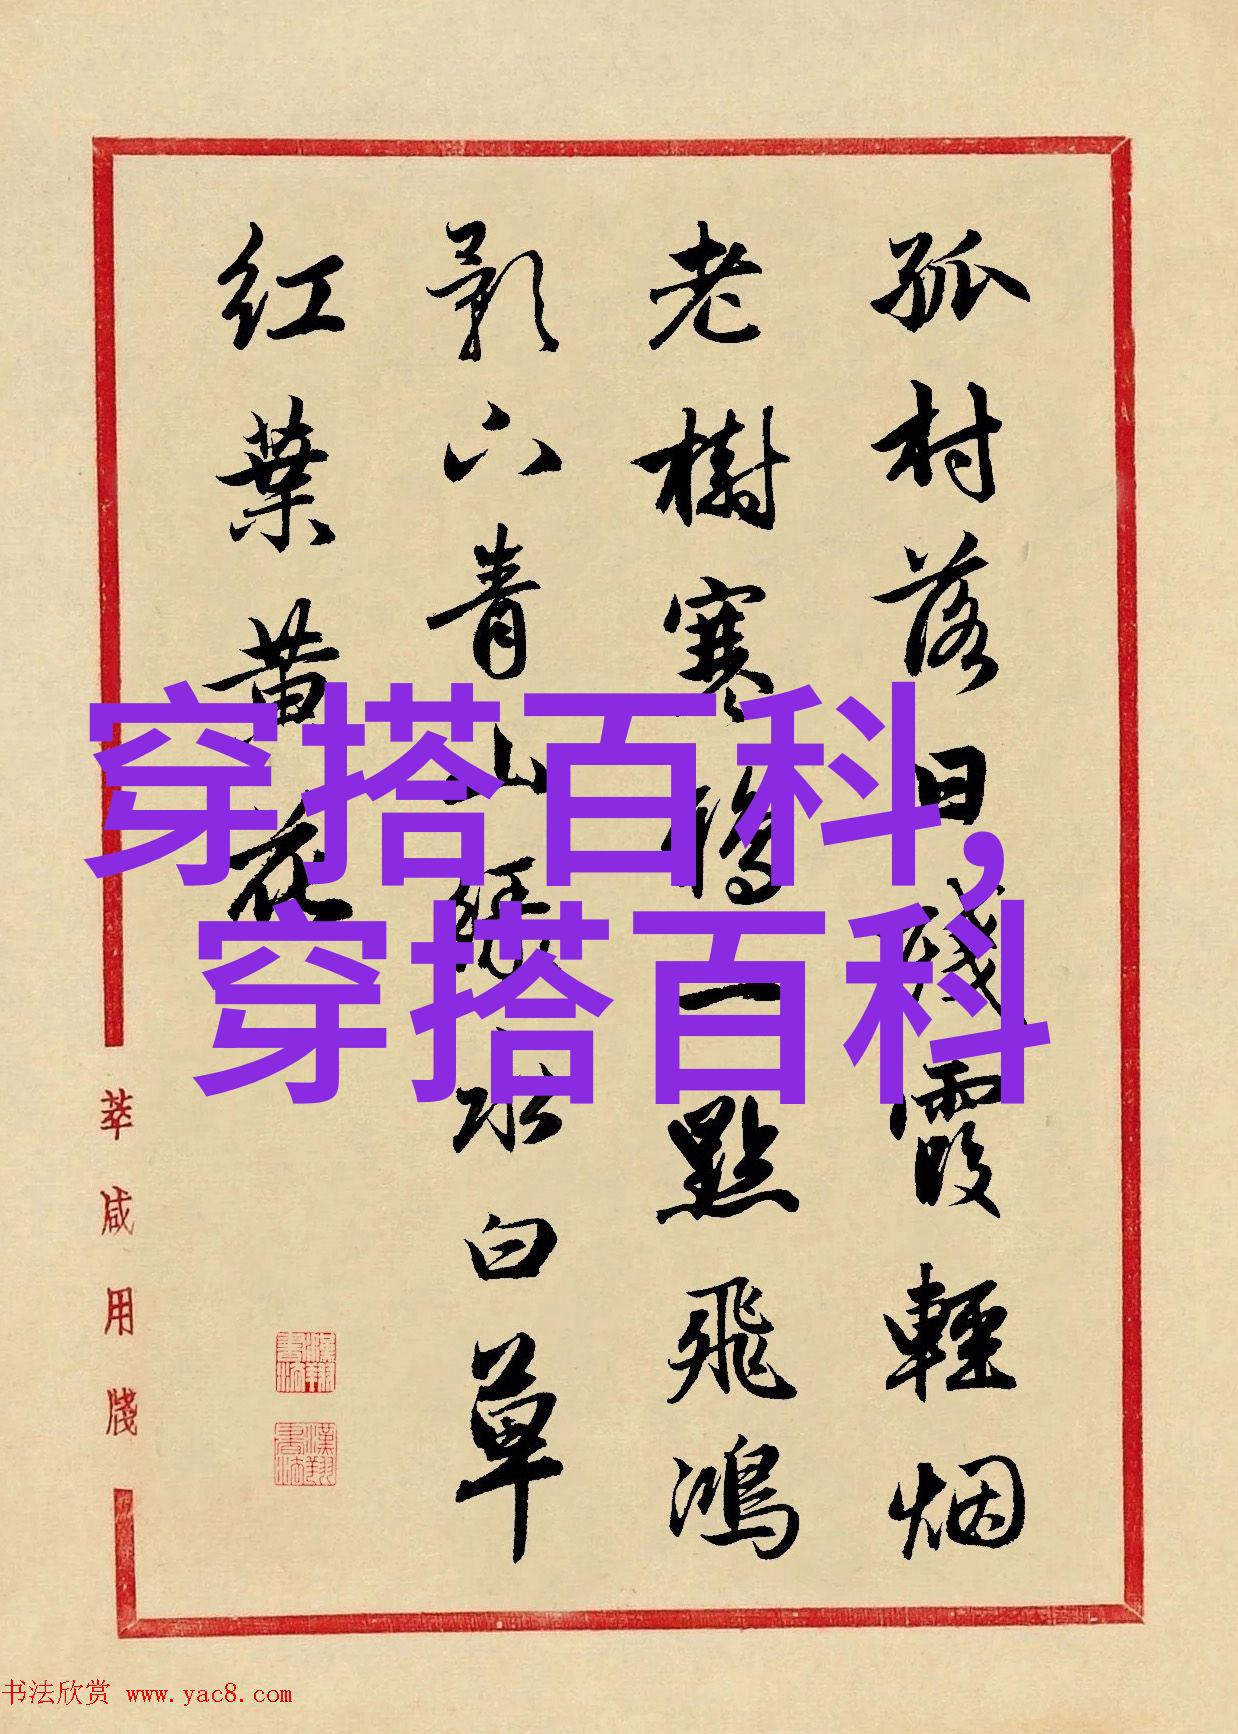 孤村落日殘霞輕烟
老樹寒鴉一點飛鴻
影下青山綠水白草
红葉黄花
萃咸用牋
穿搭百科,
穿搭百科
书法欣赏 www.yac8.com